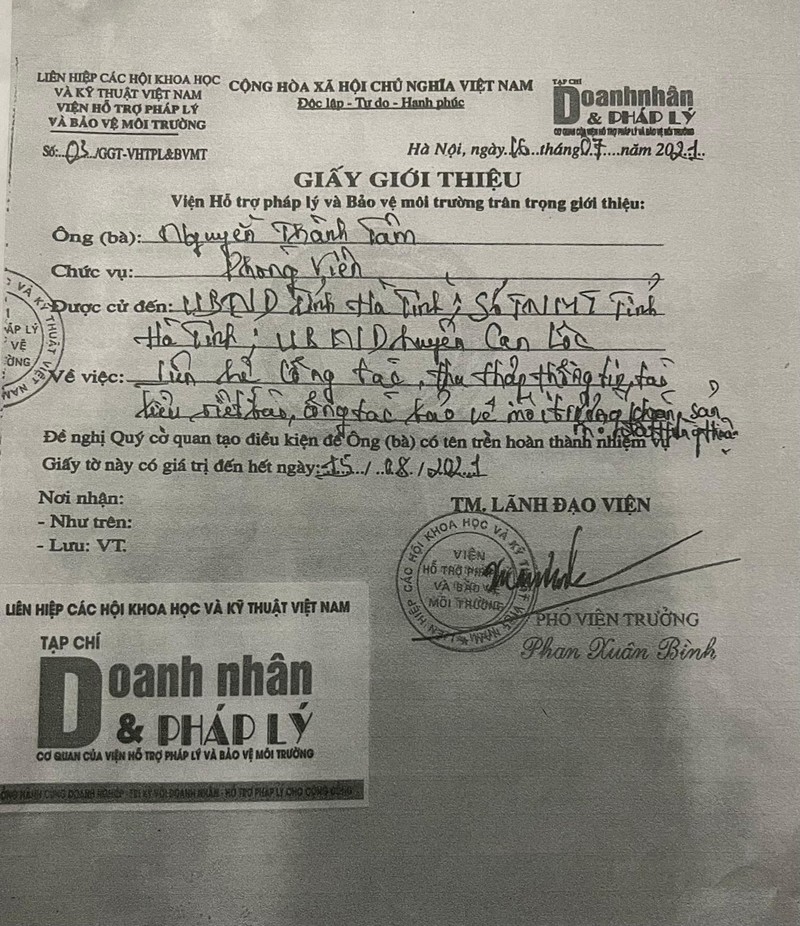 LIÊN HIỆP CÁC HỘI KHOA HỌC
VÀ KỸ THUẬT VIỆT NAM
VIỆN HỖ TRỢ PHÁP LÝ
VÀ BẢO VỆ MÔI TRƯỜNG
Số:..03../GGT-VHTPL&BVMT
CỘNG HÒA XÃ HỘI CHỦ NGHĨA VIỆT NAM
Độc lập - Tự do - Hạnh phúc
TẠP CHÍ
Doanhnhân
& PHÁP LÝ
CƠ QUAN CỦA VIỆN HỖ TRỢ PHÁP LÝ VÀ BẢO VỆ MÔI TRƯỜNG
Hà Nội, ngày 16 tháng 07 năm 2021
GIẤY GIỚI THIỆU
Viện Hỗ trợ pháp lý và Bảo vệ môi trường trân trọng giới thiệu:
Ông (bà): Nguyễn Thành Tâm
Chức vụ: Phóng Viên
Được cử đến: UBND Tỉnh Hà Tĩnh; Sở TNMT Tỉnh
Hà Tĩnh; UBND huyện Can Lộc
Về việc: Liên hệ Công tác, thu thập thông tin, tài
liệu viết bài, công tác bảo vệ môi trường, khoáng sản
Đề nghị Quý cơ quan tạo điều kiện để Ông (bà) có tên trên hoàn thành nhiệm vụ
Giấy tờ này có giá trị đến hết ngày: 15/08/2021
Nơi nhận:
- Như trên:
- Lưu: VT.
TM. LÃNH ĐẠO VIỆN
LIÊN HIỆP CÁC HỘI KHOA HỌC VÀ KỸ THUẬT VIỆT NAM
VIỆN
HỖ TRỢ PHÁP
VÀ BẢO VỆ
MÔI TRƯỜNG
PHÓ VIỆN TRƯỞNG
Phan Xuân Bình
LIÊN HIỆP CÁC HỘI KHOA HỌC VÀ KỸ THUẬT VIỆT NAM
TẠP CHÍ
Doanh nhân
& PHÁP LÝ
CƠ QUAN CỦA VIỆN HỖ TRỢ PHÁP LÝ VÀ BẢO VỆ MÔI TRƯỜNG
HỖ TRỢ PHÁP LÝ CHO CỘNG ĐỒNG